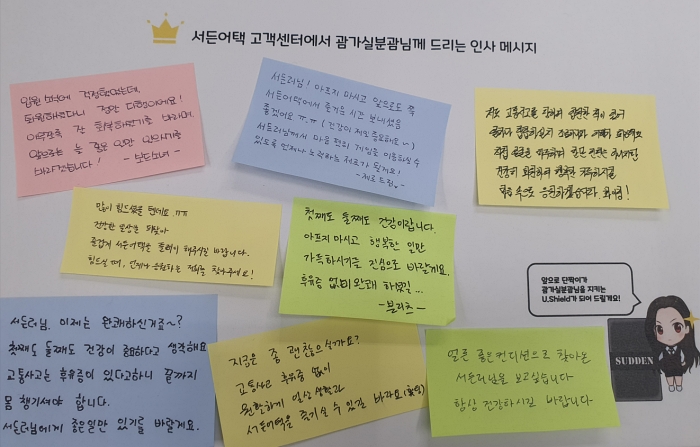 서든어택 고객센터에서 괌가실분괌님께 드리는 인사 메시지
입원 소식에 걱정했었는데,
퇴원하셨다니 정말 다행이에요!
아무쪼록 잘 회복하시기를 바라며,
앞으로는 늘 좋은 일만 있으시기를
바라겠습니다! - 보드보너 -
서든러님! 아프지 마시고 앞으로도 쭉
서든어택에서 즐거운 시간 보내셨음
좋겠어요 ㅠ.ㅠ (건강이 제일 중요해요~)
서든러님께서 마음 편히 게임을 이용하실 수
있도록 언제나 노력하는 제로가 될게요!
- 제로 드림 -
저도 교통사고를
직접
건강히 회복하여 행복만 가득하시길
마음 속으로 응원하겠습니다. 화이팅!
많이 힘드셨을 텐데요 ㅠㅠ
건강한 모습을 되찾아
즐겁게 서든어택을 플레이 해주시길 바랍니다.
힘드실 때, 언제나 응원하는 저희를 찾아주세요!
첫째도 둘째도 건강이랍니다.
아프지 마시고 행복한 일만
가득하시기를 진심으로 바랄게요.
후유증 없이 완쾌 하셨길...
- 블리츠 -
앞으로 단짝이가
괌가실분괌님을 지키는
U.Shield가 되어 드릴게요!
SUDDEN
서든러님. 이제는 완쾌하신거죠~?
첫째도 둘째도 건강이 중요하다고 생각해요
교통사고는 후유증이 있다고하니 끝까지
몸 챙기셔야 합니다.
서든러님에게 좋은일만 있기를 바랄게요.
지금은 좀 괜찮으실까요?
교통사고 후유증 없이
원활하게 일상 생활과
서든어택을 즐기실 수 있길 바라요
얼른 좋은 컨디션으로 찾아온
서든러님을 보고싶습니다
항상 건강하시길 바랍니다